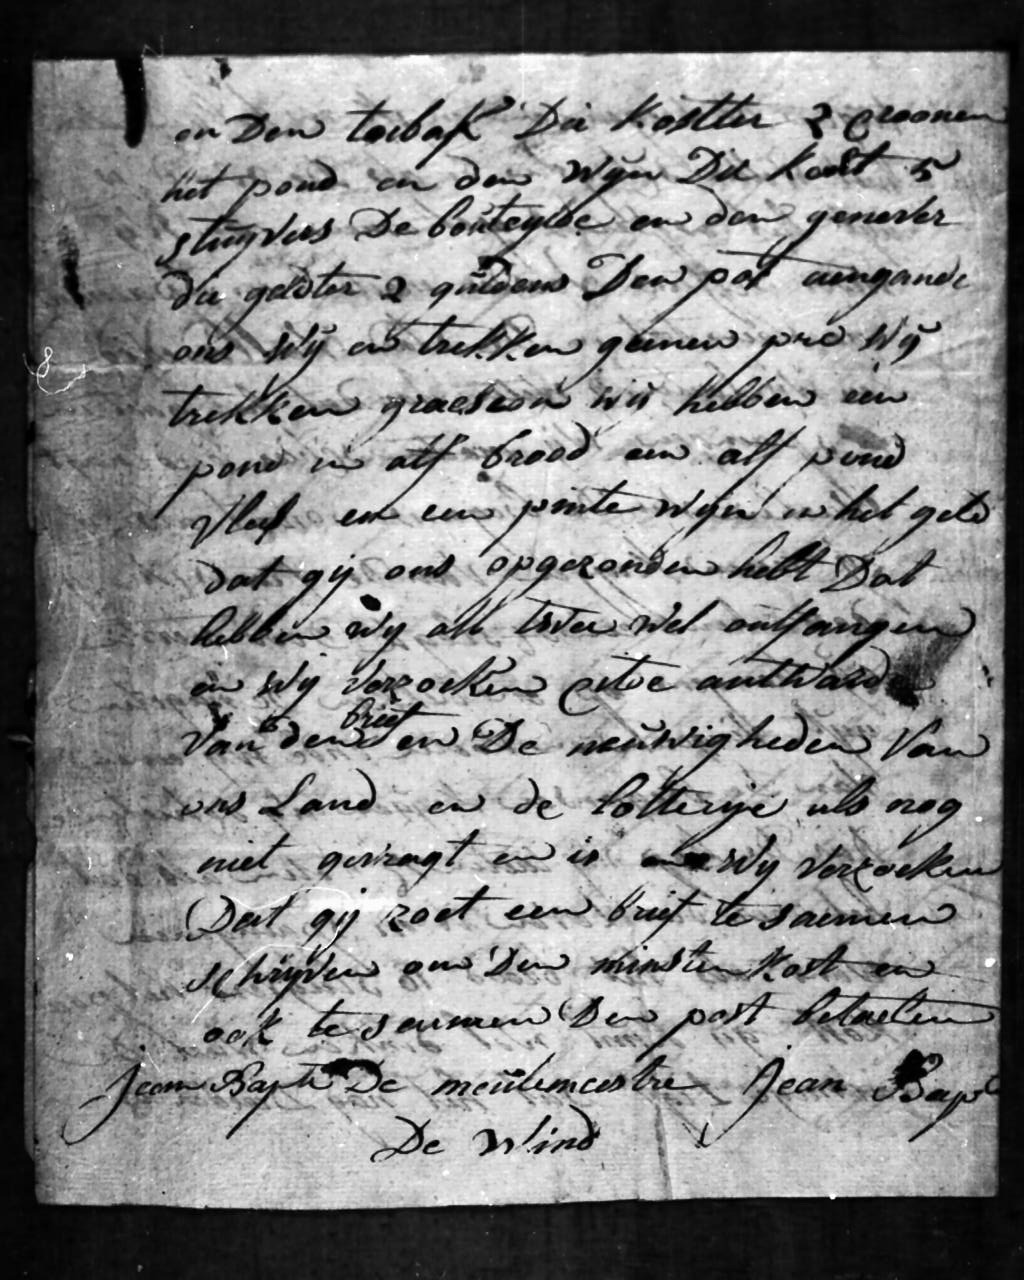 en Den toebak Die kostter 2 croonen
het pond en den wijn Die kost 5
stuyvers De bouteylde en den genever
die geldter 2 guldens Den pot aengande
ons wij en trekken geenen pré wij
trekken graeson wij hebben een
pond en alf brood een alf pond
vlees en een pinte wijn en het geld
dat gij ons opgezonden hebt Dat
hebben wij alle twee wel ontfangen
en wij verzoeken citoe antward
van den brief en De neuwigheden van
ons Land en de lotterije als nog
niet gevraegt en is en wij verzoeken
Dat gij zoet een brief te saemen
schrijven om Den minsten kost en
ook te saemen Den post betaelen
Jean Bapte De meulemeestre Jean Bapt
De Wind